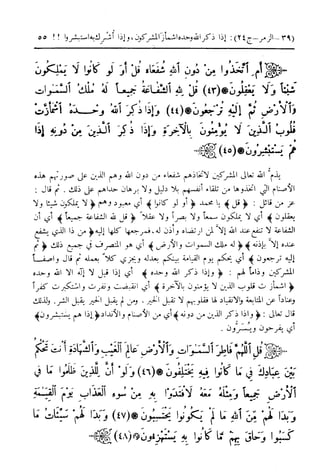 (٣٩ - الزمر - ج ٢٤) : إذا ذكر الله وحده اشمأز المشركون ، وإذا أشرك به استبشروا !! ٥٥
أَمِ ٱتَّخَذُوا مِنْ دُونِ ٱللَّهِ شُفَعَاءَ قُلْ أَوَلَوْ كَانُوا لَا يَمْلِكُونَ
شَيْئًا وَلَا يَعْقِلُونَ (٤٣) قُلْ لِلَّهِ ٱلشَّفَاعَةُ جَمِيعًا لَهُ مُلْكُ ٱلسَّمَوَاتِ
وَٱلْأَرْضِ ثُمَّ إِلَيْهِ تُرْجَعُونَ (٤٤) وَإِذَا ذُكِرَ ٱللَّهُ وَحْدَهُ ٱشْمَأَزَّتْ
قُلُوبُ ٱلَّذِينَ لَا يُؤْمِنُونَ بِٱلْآخِرَةِ وَإِذَا ذُكِرَ ٱلَّذِينَ مِنْ دُونِهِ إِذَا
هُمْ يَسْتَبْشِرُونَ (٤٥)
يذم الله تعالى المشركين لاتخاذهم شفعاء من دون الله وهم الذين على صورتهم هذه
الأصنام التي اتخذوها من تلقاء أنفسهم بلا دليل ولا برهان حداهم على ذلك . ثم قال :
عز من قائل : ﴿ قل ﴾ يا محمد ﴿ أو لو كانوا ﴾ أي معبودوهم ﴿ لا يملكون شيئاً ولا
يعقلون ﴾ أي لا يملكون سمعاً ولا بصراً ولا عقلاً ﴿ قل لله الشفاعة جميعاً ﴾ أي أن
الشفاعة لا تنفع عند الله إلا لمن ارتضاه وأذن له . فمرجعها كلها إليه ﴿ من ذا الذي يشفع
عنده إلا بإذنه ﴾ ﴿ له ملك السموات والأرض ﴾ أي هو المتصرف في جميع ذلك ﴿ ثم
إليه ترجعون ﴾ أي يحكم يوم القيامة بينكم بعدله ويجزي كلاً بعمله ثم قال واصفاً
المشركين وذاماً لهم : ﴿ وإذا ذكر الله وحده ﴾ أي إذا قيل لا إله الا الله وحده
﴿ اشمأزت قلوب الذين لا يؤمنون بالآخرة ﴾ أي انقبضت ونفرت واشتكبرت كفراً
وعناداً عن المتابعة والانقياد لها فقلوبهم لا تقبل الخير . ومن لم يقبل الخير يقبل الشر. ولذلك
قال تعالى : ﴿ وإذا ذكر الذين من دونه ﴾ أي من الأصنام والأنداد ﴿ إذا هم يستبشرون ﴾
أي يفرحون ويسرون .
قُلِ ٱللَّهُمَّ فَاطِرَ ٱلسَّمَوَاتِ وَٱلْأَرْضِ عَالِمَ ٱلْغَيْبِ وَٱلشَّهَادَةِ أَنْتَ تَحْكُمُ
بَيْنَ عِبَادِكَ فِي مَا كَانُوا فِيهِ يَخْتَلِفُونَ (٤٦) وَلَوْ أَنَّ لِلَّذِينَ ظَلَمُوا مَا فِي
ٱلْأَرْضِ جَمِيعًا وَمِثْلَهُ مَعَهُ لَافْتَدَوْا بِهِ مِنْ سُوءِ ٱلْعَذَابِ يَوْمَ ٱلْقِيَمَةِ
وَبَدَا لَهُمْ مِنَ ٱللَّهِ مَا لَمْ يَكُونُوا يَحْتَسِبُونَ (٤٧) وَبَدَا لَهُمْ سَيِّئَاتُ مَا
كَسَبُوا وَحَاقَ بِهِمْ مَا كَانُوا بِهِ يَسْتَهْزِءُونَ (٤٨)